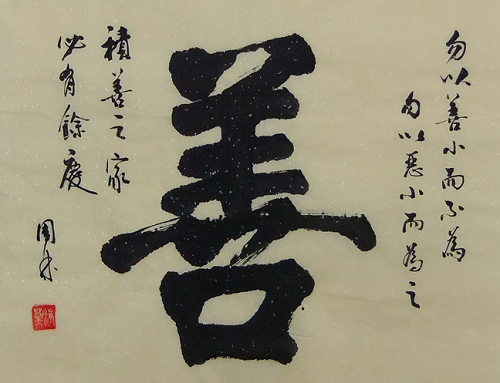 勿以善小而不為
勿以惡小而為之
善
積善之家
必有餘慶